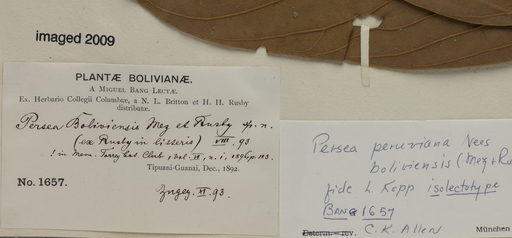 imaged 2009
PLANTÆ BOLIVIANÆ.
A MIGUEL BANG LECTÆ.
Ex. Herbario Collegii Columbæ, a N. L. Britton et H. H. Rusby
distributæ.
Persea Boliviensis Mez et Rusby sp. n.
(ex Rusby in litteris) VIII. 93
! in Mem. Torrey Bot. Club, vol. VI, n. 1, 1896 p. 113.
Tipuani-Guanai, Dec., 1892.
No. 1657. XI. 93.
Persea peruviana Nees
boliviensis (Mez + Ru
fide L. Kopp isolectotype
BANG 1657
Determ.-rev. C. K. Allen München